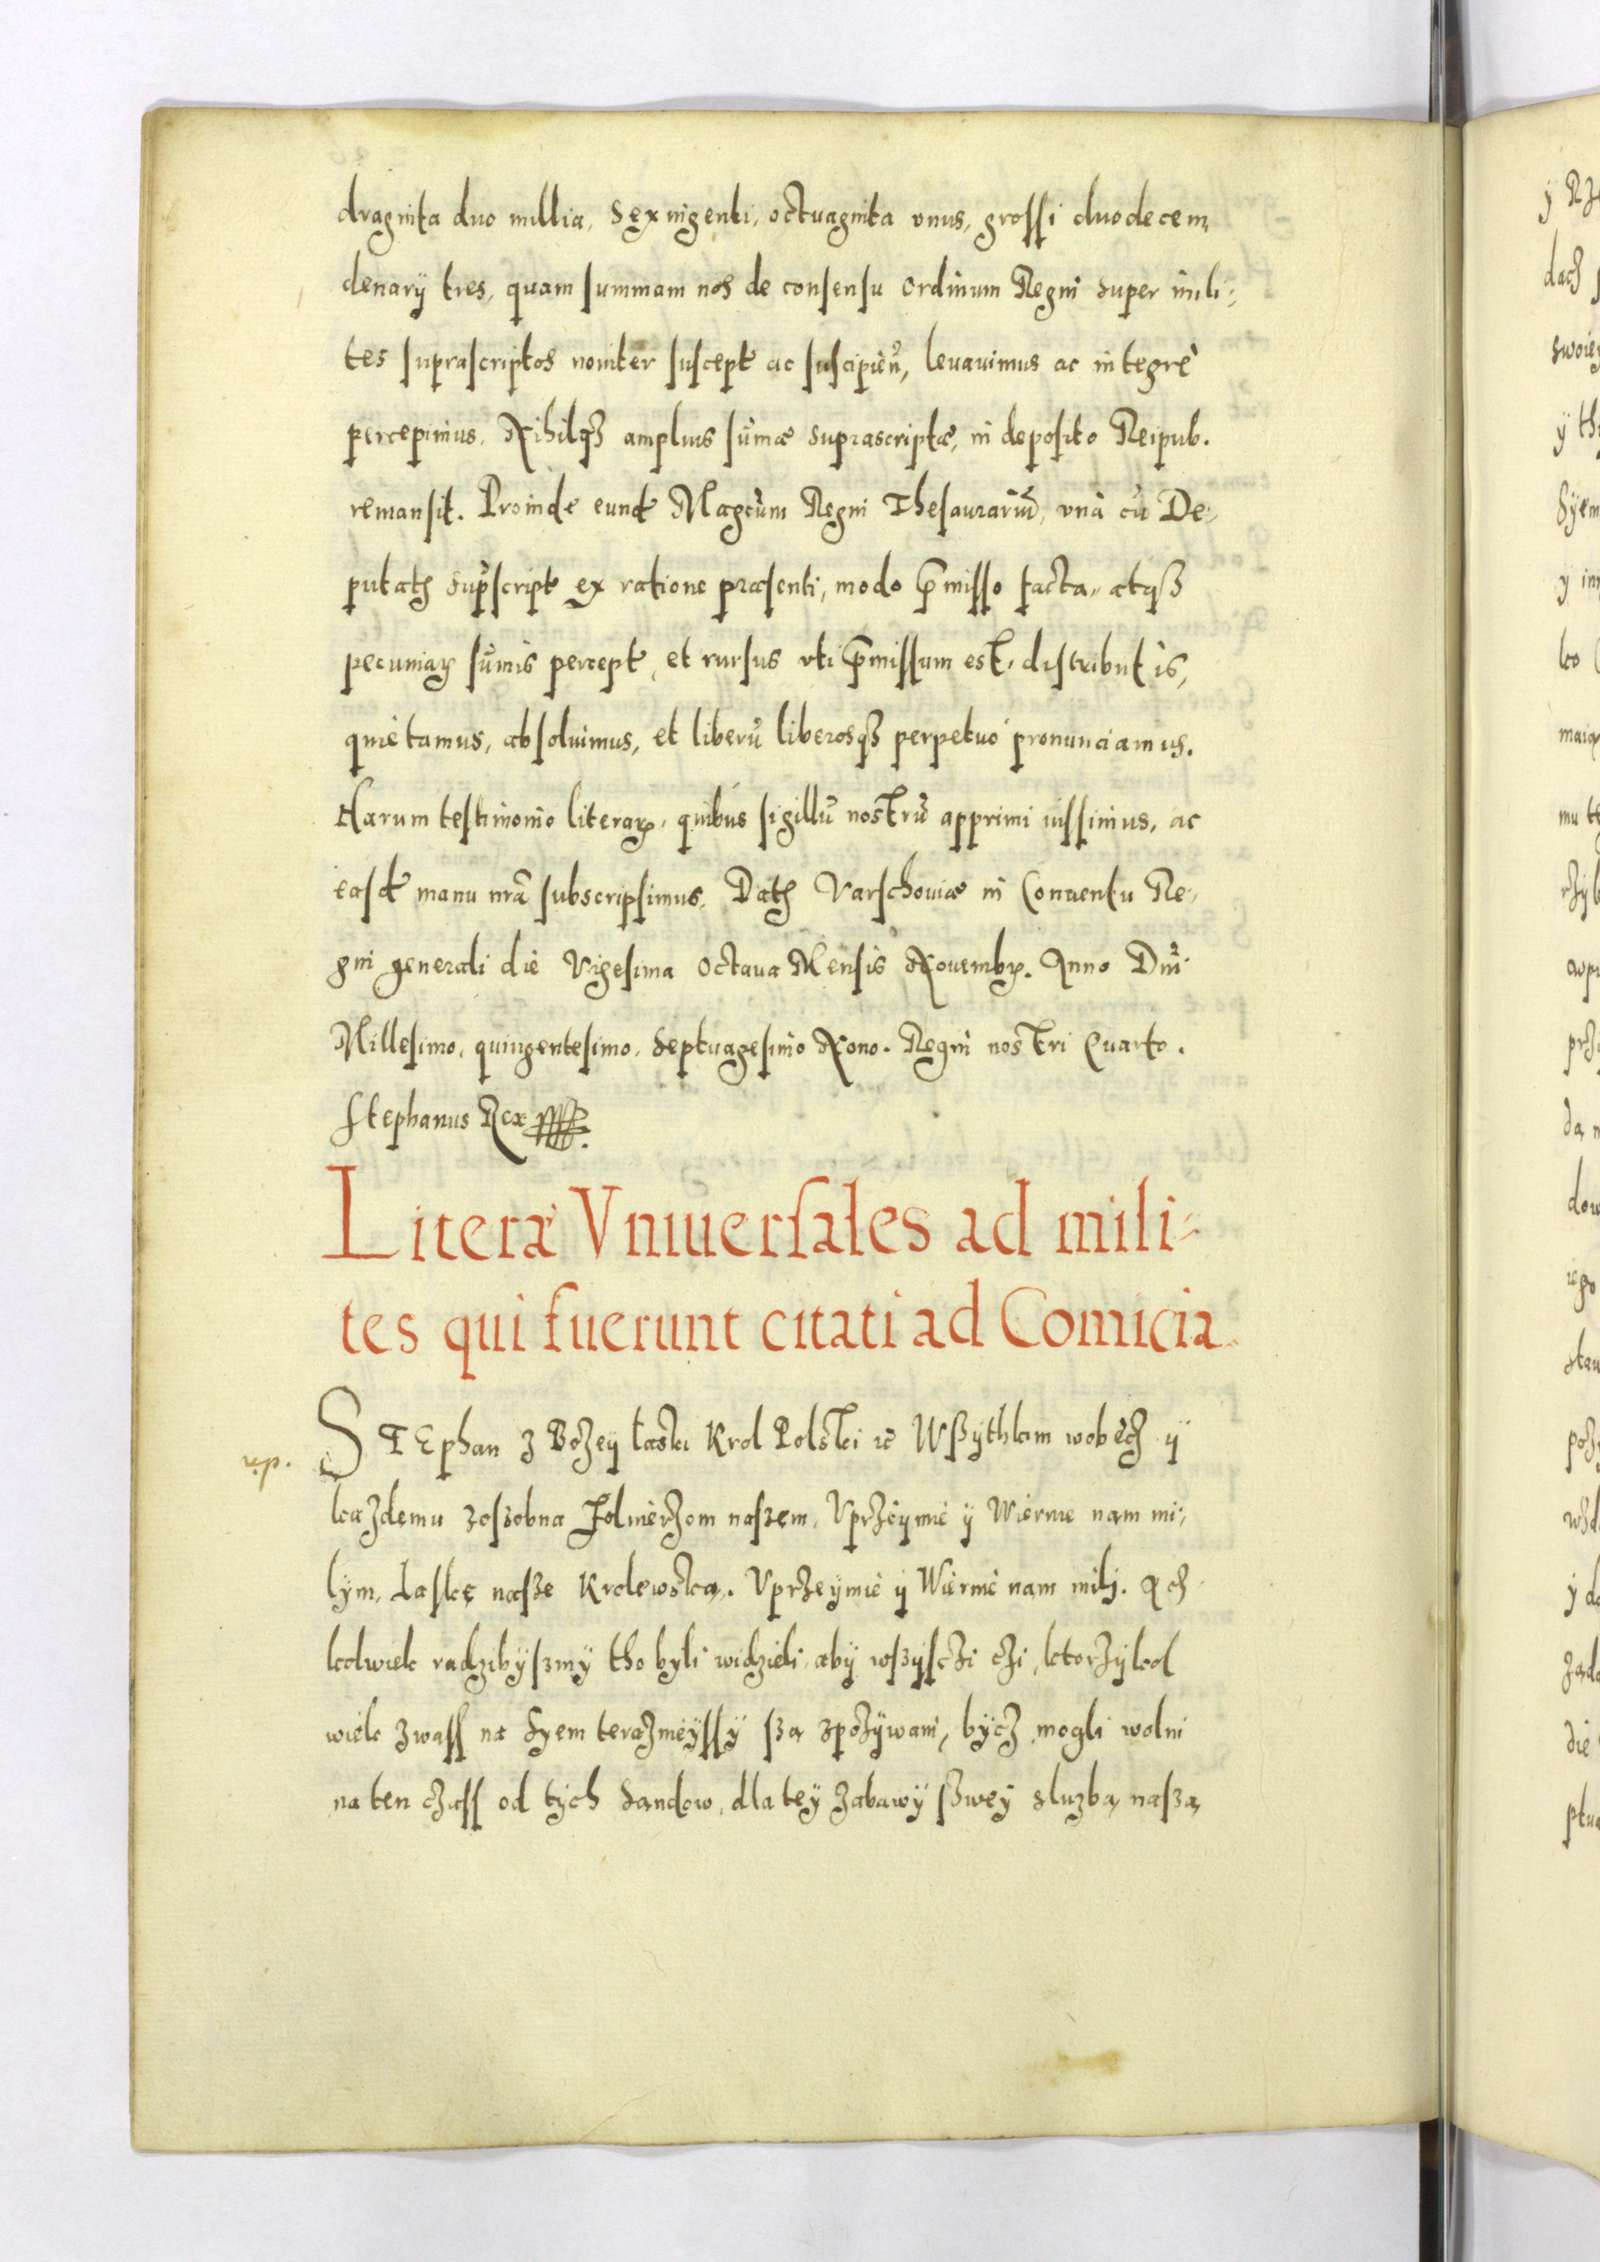 draginta duo millia, Sexingenti, octuaginta unus, grossi duodecem,
denarÿ tres, quam summam nos de consensu Ordinum Regni super mili-
tes suprascriptos noviter suscept ac suscipien̄, levavimus ac integrè
percepimus. Nihilqȝ amplius sūmæ suprascriptæ, in deposito Reipub.
remansit. Proinde eund Magcūm Regni Thesaurariū, unà cū De-
putatꝫ supscript ex ratione præsenti, modo p̄misso facta, atqȝ
pecuniaꝝ sūmis percept, et rursus uti p̄missum est, distributis,
quietamus, absolvimus, et liberū liberosqȝ perpetuò pronunciamus.
Harum testimonio literaꝝ, quibus sigillū nostrū apprimi iussimus, ac
easd manu nr̄a subscripsimus. Datꝫ Varschoviæ in Conventu Re-
gni generali die Vigesima Octava Mensis Novembꝝ. Anno Dn̄i
Millesimo, quingentesimo, Septuagesimo Nono. Regni nostri Quarto.
Stephanus Rex
Literæ Vniuersales ad mili-
tes qui fuerunt citati ad Comicia
STEphan z Bożey łaski Krol Polski ꝛc Wßythkim wobecz ÿ
v.p.
każdemu zoszobna Żolnierżom naszem, Vprżeÿmie ÿ Wiernie nam mi-
lÿm, Łaskę nasze Krolewską. Vprżeymie ÿ Wiernie nam mili. Acz
kolwiek radzibÿszmÿ tho byli widzieli, abÿ wszÿscżi cżi, ktorżÿkol
wiek zwass na Sÿem terażnieÿssÿ szą zpożÿwani, bÿcz mogli wolni
na ten cżass od tÿch Sandow, dla teÿ zabawÿ sßweÿ sluzbą naszą